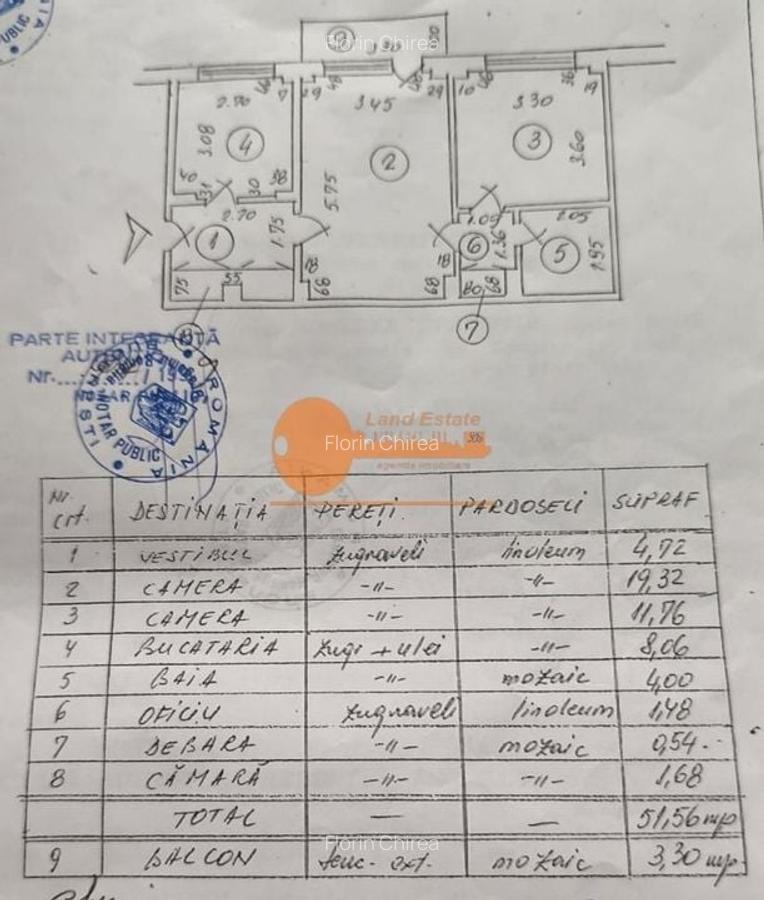 Florin Chirea
2.70
3.08
4
3.45
5.75
2
3.30
3
3.60
2.70
1
1.75
1.09
6
1.36
2.05
5
1.95
75
55
18
68
18
68
80
68
7
PARTE INTEGRANTĂ
ROMÂNIA
NOTAR PUBLIC
Land Estate
Florin Chirea
agentia imobiliara
Nr. crt. DESTINAȚIA PEREȚI PARDOSELI SUPRAF
1 VESTIBUL zugraveli linoleum 4,72
2 CAMERA -〃- -〃- 19,32
3 CAMERA -〃- -〃- 11,76
4 BUCATARIA zugr + ulei -〃- 8,06
5 BAIA -〃- mozaic 4,00
6 OFICIU zugraveli linoleum 1,48
7 DEBARA -〃- mozaic 0,54.-
8 CĂMARĂ -〃- -〃- 1,68
TOTAL — — 51,56 mp
Florin Chirea
9 BALCON tenc. ext. mozaic 3,30 mp.